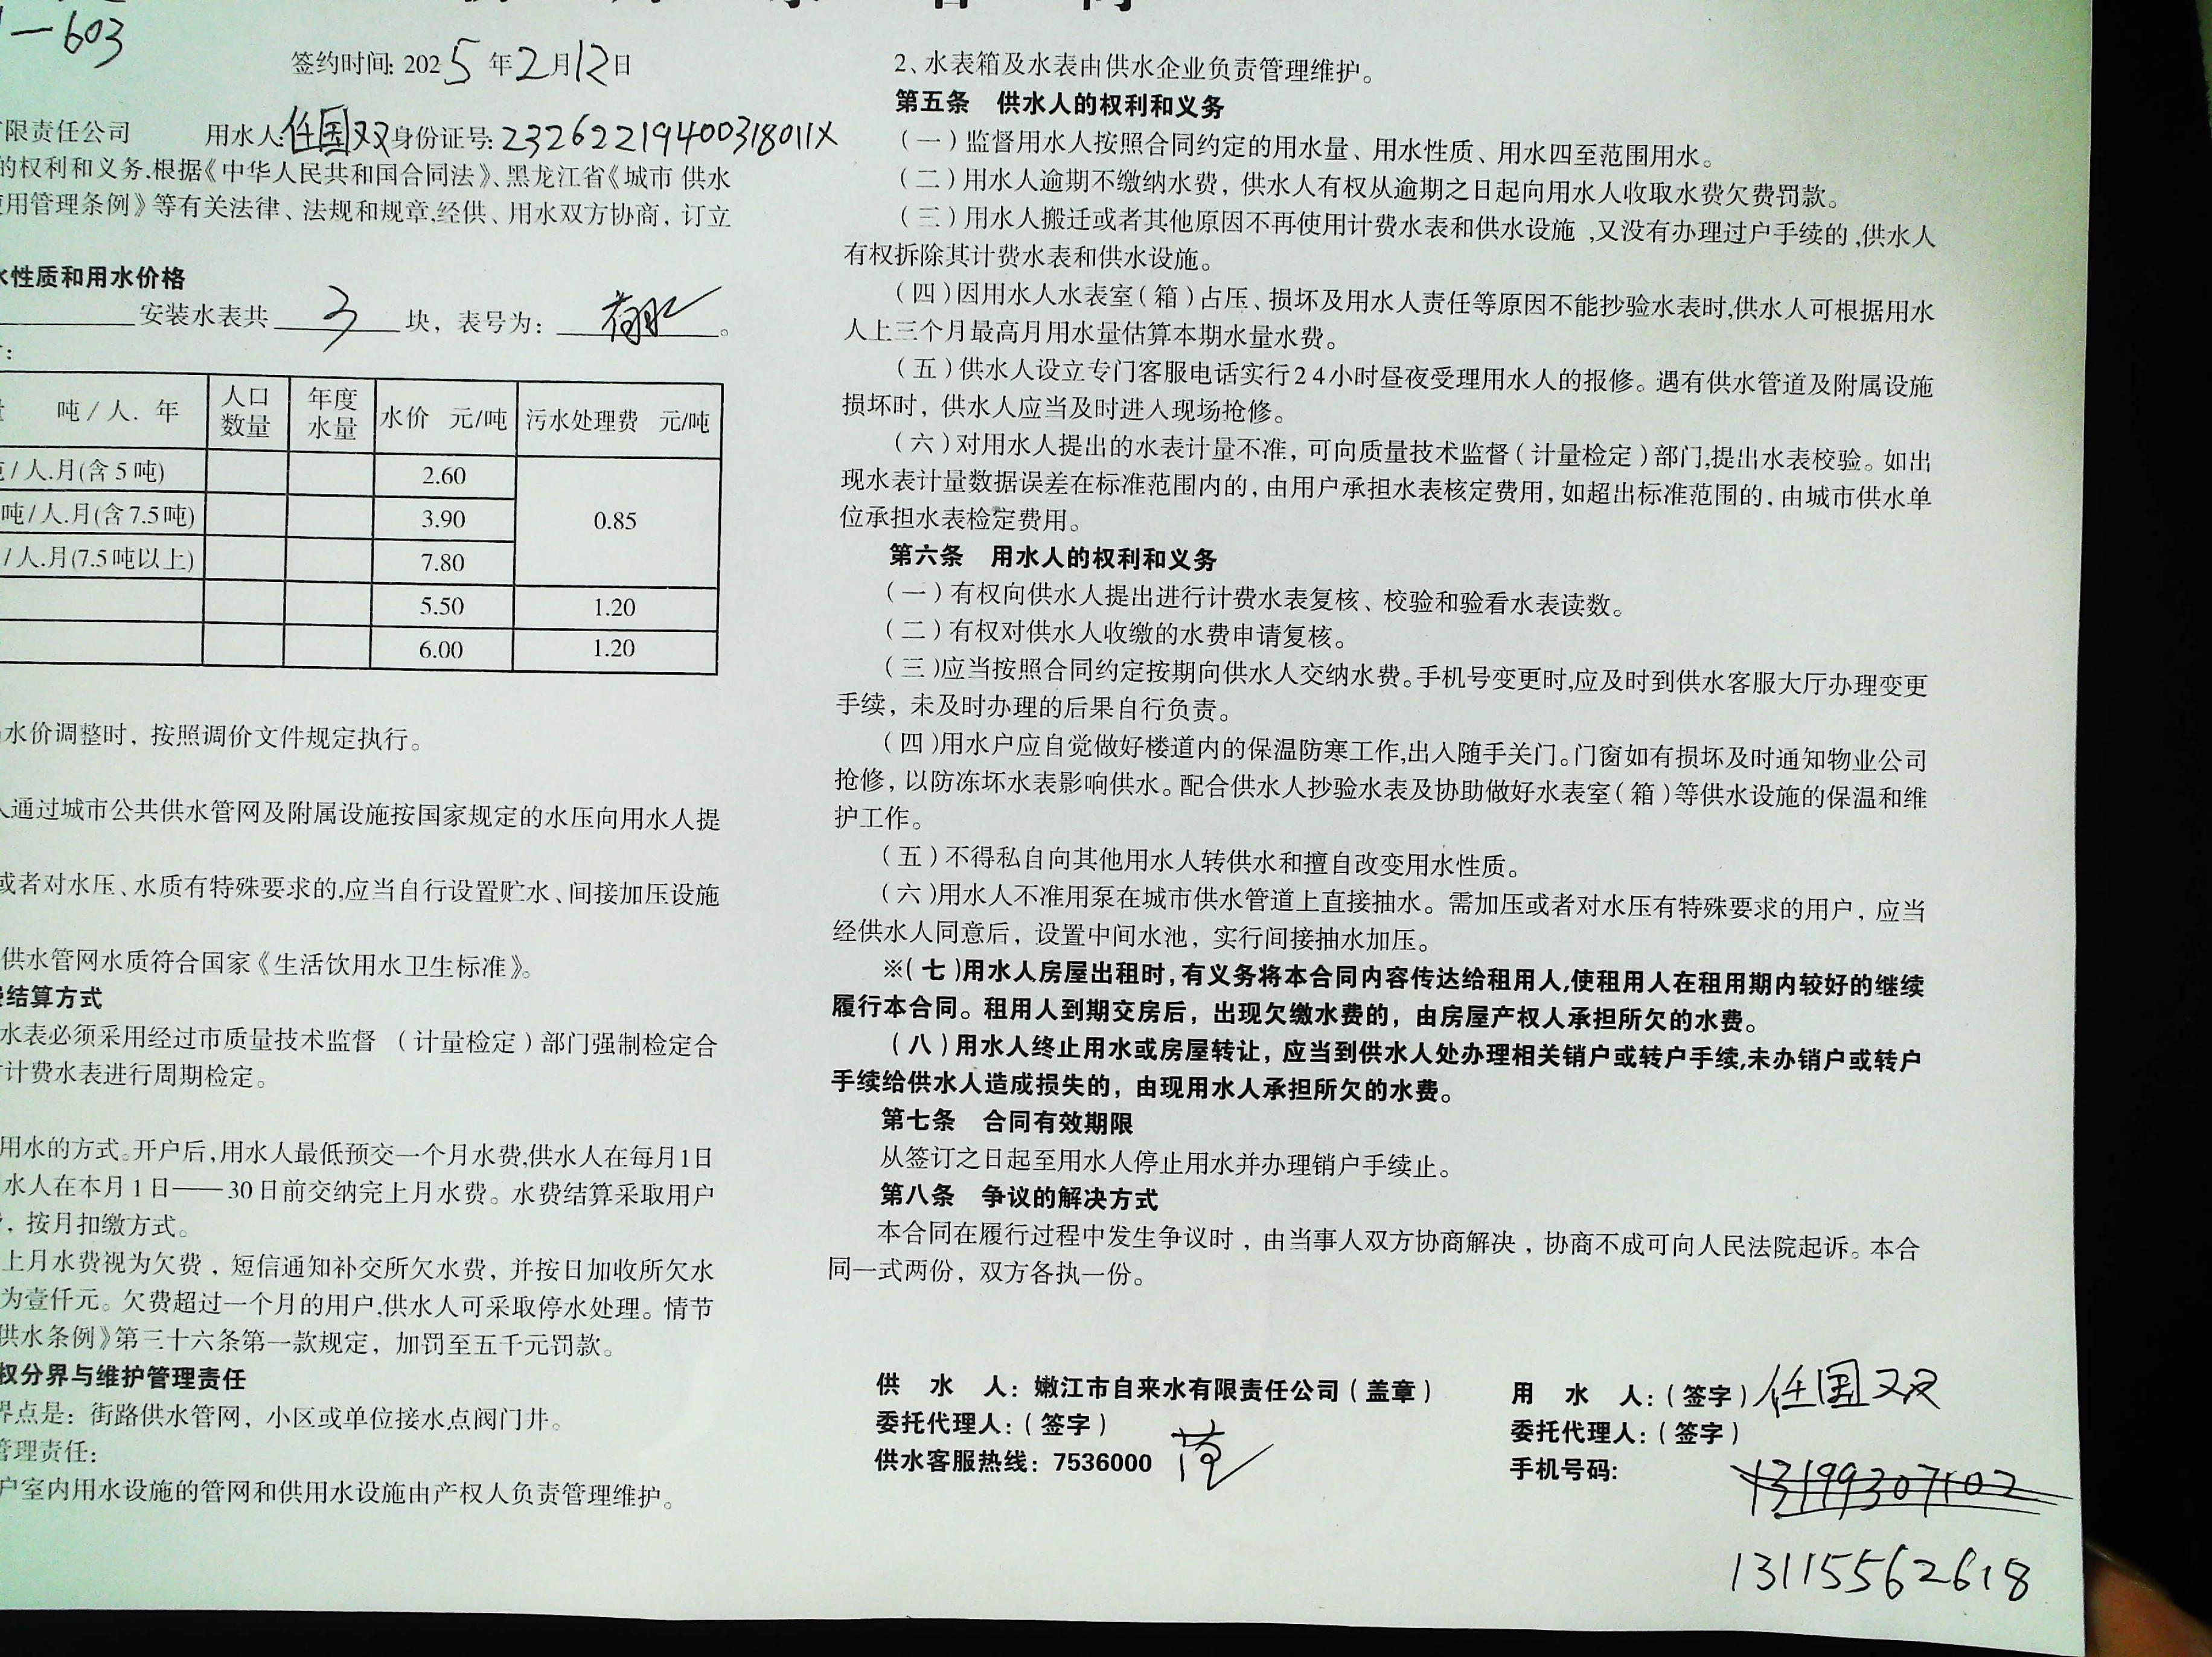 一603
签约时间: 2025年2月12日
限责任公司 用水人:任国双 身份证号: 23262219400318011X
的权利和义务.根据《中华人民共和国合同法》、黑龙江省《城市 供水
用管理条例》等有关法律、法规和规章,经供、用水双方协商，订立
水性质和用水价格
安装水表共 3 块，表号为:
吨/人. 年 人口数量 年度水量 水价 元/吨 污水处理费 元/吨
/人.月(含5吨) 2.60 0.85
吨/人.月(含7.5吨) 3.90
/人.月(7.5吨以上) 7.80
5.50 1.20
6.00 1.20
水价调整时，按照调价文件规定执行。
人通过城市公共供水管网及附属设施按国家规定的水压向用水人提
或者对水压、水质有特殊要求的,应当自行设置贮水、间接加压设施
供水管网水质符合国家《生活饮用水卫生标准》。
结算方式
水表必须采用经过市质量技术监督 (计量检定)部门强制检定合
计费水表进行周期检定。
用水的方式。开户后,用水人最低预交一个月水费,供水人在每月1日
水人在本月1日——30日前交纳完上月水费。水费结算采取用户
，按月扣缴方式。
上月水费视为欠费，短信通知补交所欠水费，并按日加收所欠水
为壹仟元。欠费超过一个月的用户,供水人可采取停水处理。情节
供水条例》第三十六条第一款规定，加罚至五千元罚款。
权分界与维护管理责任
界点是：街路供水管网，小区或单位接水点阀门井。
管理责任:
户室内用水设施的管网和供用水设施由产权人负责管理维护。
2、水表箱及水表由供水企业负责管理维护。
第五条 供水人的权利和义务
(一)监督用水人按照合同约定的用水量、用水性质、用水四至范围用水。
(二)用水人逾期不缴纳水费，供水人有权从逾期之日起向用水人收取水费欠费罚款。
(三)用水人搬迁或者其他原因不再使用计费水表和供水设施 ,又没有办理过户手续的,供水人
有权拆除其计费水表和供水设施。
(四)因用水人水表室(箱)占压、损坏及用水人责任等原因不能抄验水表时,供水人可根据用水
人上三个月最高月用水量估算本期水量水费。
(五)供水人设立专门客服电话实行24小时昼夜受理用水人的报修。遇有供水管道及附属设施
损坏时，供水人应当及时进入现场抢修。
(六)对用水人提出的水表计量不准，可向质量技术监督(计量检定)部门,提出水表校验。如出
现水表计量数据误差在标准范围内的，由用户承担水表核定费用，如超出标准范围的，由城市供水单
位承担水表检定费用。
第六条 用水人的权利和义务
(一)有权向供水人提出进行计费水表复核、校验和验看水表读数。
(二)有权对供水人收缴的水费申请复核。
(三)应当按照合同约定按期向供水人交纳水费。手机号变更时,应及时到供水客服大厅办理变更
手续，未及时办理的后果自行负责。
(四)用水户应自觉做好楼道内的保温防寒工作,出入随手关门。门窗如有损坏及时通知物业公司
抢修，以防冻坏水表影响供水。配合供水人抄验水表及协助做好水表室(箱)等供水设施的保温和维
护工作。
(五)不得私自向其他用水人转供水和擅自改变用水性质。
(六)用水人不准用泵在城市供水管道上直接抽水。需加压或者对水压有特殊要求的用户，应当
经供水人同意后，设置中间水池，实行间接抽水加压。
※(七)用水人房屋出租时，有义务将本合同内容传达给租用人,使租用人在租用期内较好的继续
履行本合同。租用人到期交房后，出现欠缴水费的，由房屋产权人承担所欠的水费。
(八)用水人终止用水或房屋转让，应当到供水人处办理相关销户或转户手续,未办销户或转户
手续给供水人造成损失的，由现用水人承担所欠的水费。
第七条 合同有效期限
从签订之日起至用水人停止用水并办理销户手续止。
第八条 争议的解决方式
本合同在履行过程中发生争议时，由当事人双方协商解决，协商不成可向人民法院起诉。本合
同一式两份，双方各执一份。
供 水 人：嫩江市自来水有限责任公司(盖章)
委托代理人：(签字)
供水客服热线：7536000
用 水 人：(签字) 任国双
委托代理人：(签字)
手机号码: 13199307102
13115562618